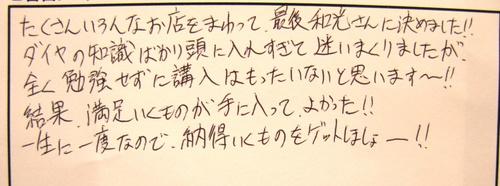 たくさんいろんなお店をまわって、最後和光さんに決めました!!
ダイヤの知識ばかり頭に入れすぎて迷いまくりましたが、
全く勉強せずに講入はもったいないと思います〜!!
結果、満足いくものが手に入って、よかった!!
一生に一度なので、納得いくものをゲットほしょー!!